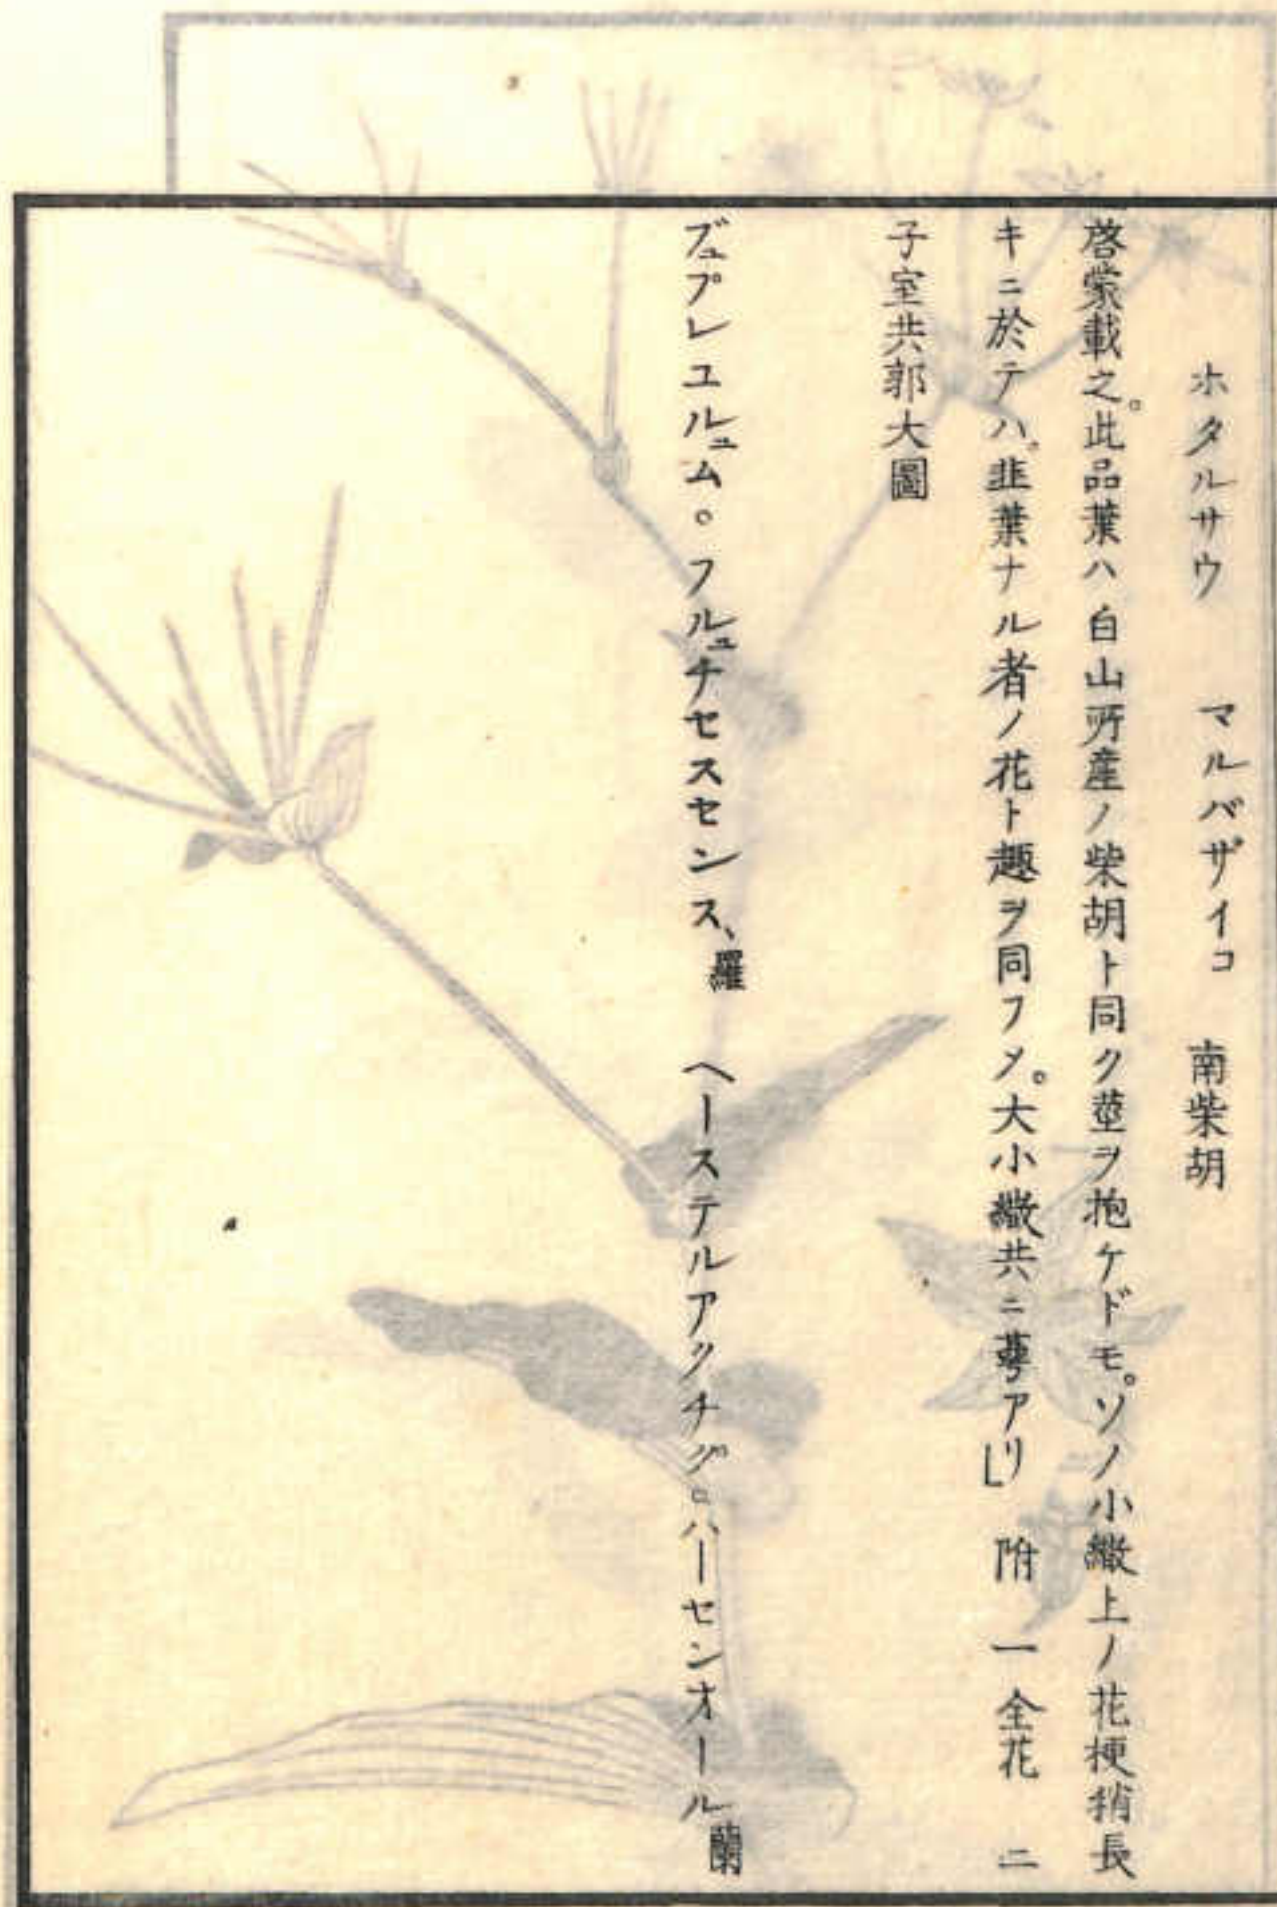 ホタルサウ　マルバサイコ　南柴胡
啓蒙載之。此品葉ハ白山所産ノ柴胡ト同ク莖ヲ抱ケドモ。ソノ小繖上ノ花梗稍長
キニ於テハ。韭葉ナル者ノ花ト趣ヲ同フメ。大小繖共ニ萼アリ」　附　一　全花　二
子室共郭大圖
ブュプレユルュム。フルュチセスセンス、羅　ヘーステルアクチグ。ハーセンオール　蘭